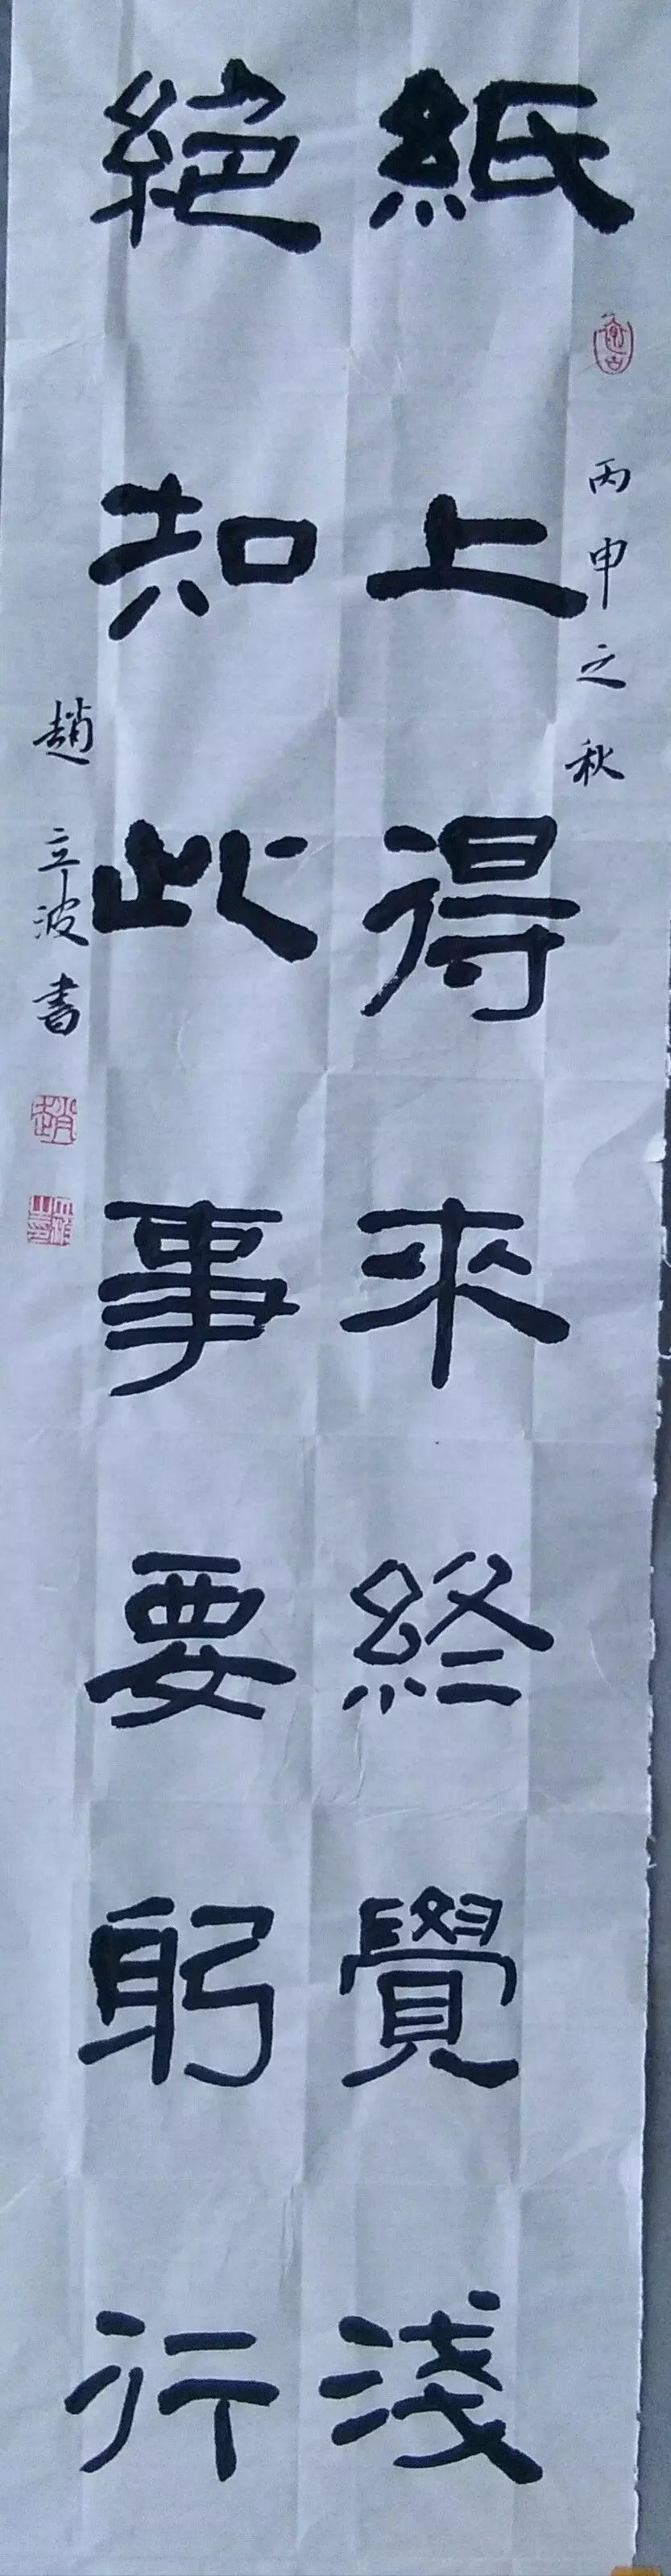 丙申之秋
紙上得来終覺淺
絶知此事要躬行
趙立波書
趙